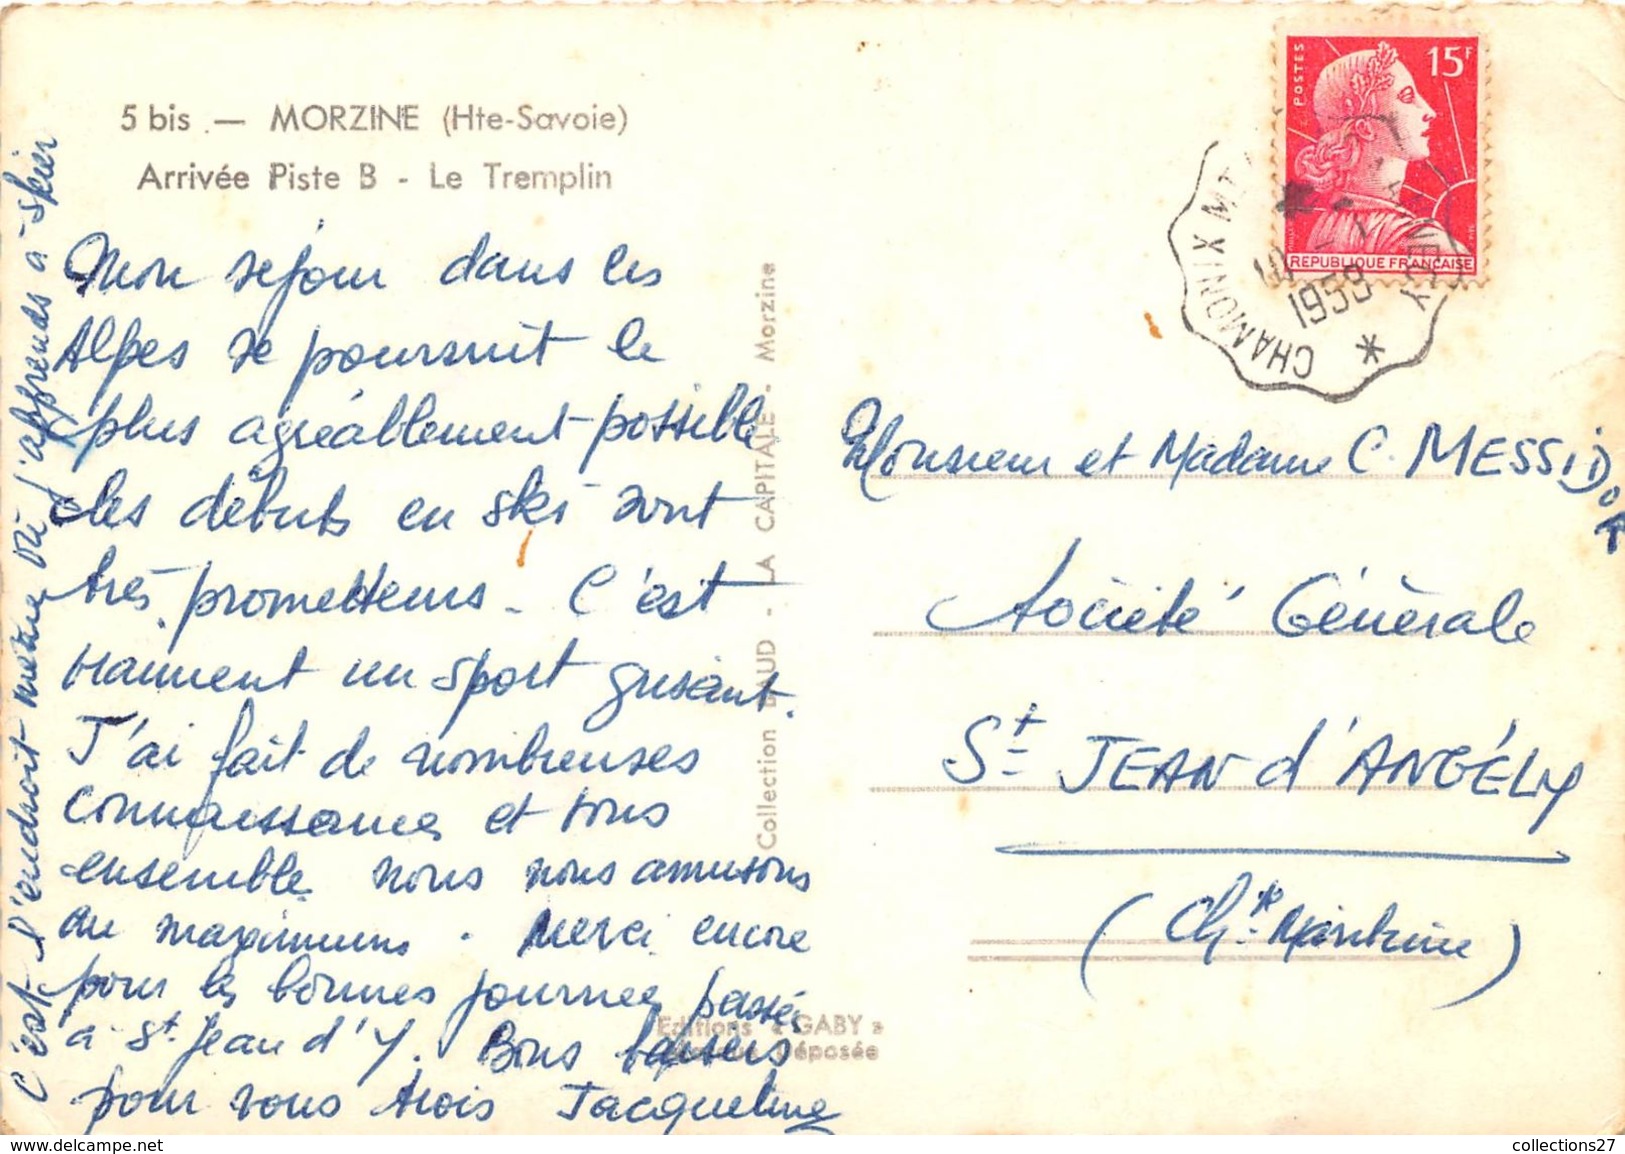 5 bis — MORZINE (Hte-Savoie)
Arrivée Piste B - Le Tremplin
Mon séjour dans les
Alpes se poursuit le
plus agréablement possible
les débuts en ski sont
très prometteurs - C'est
vraiment un sport grisant.
J'ai fait de nombreuses
connaissances et tous
ensemble nous nous amusons
au maximum. Merci encore
pour les bonnes journées passées
à St Jean d'Y. Bons baisers
pour vous trois Jacqueline
C'est l'endroit même où j'apprends à skier
Collection BAUD - LA CAPITALE - Morzine
Editions « GABY »
Marque Déposée
POSTES
15F
REPUBLIQUE FRANÇAISE
CHAMONIX
1959
*
Monsieur et Madame C. MESSIDOR
Société Générale
St JEAN d'ANGÉLY
(Chte Maritime)
collections27